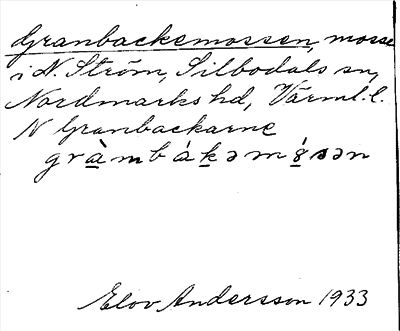 Granbackemossen, mosse
i N. Ström, Silbodals sn,
Nordmarks hd, Värml. l.
N Granbackarne
gràmbákəmósən
Elov Andersson 1933